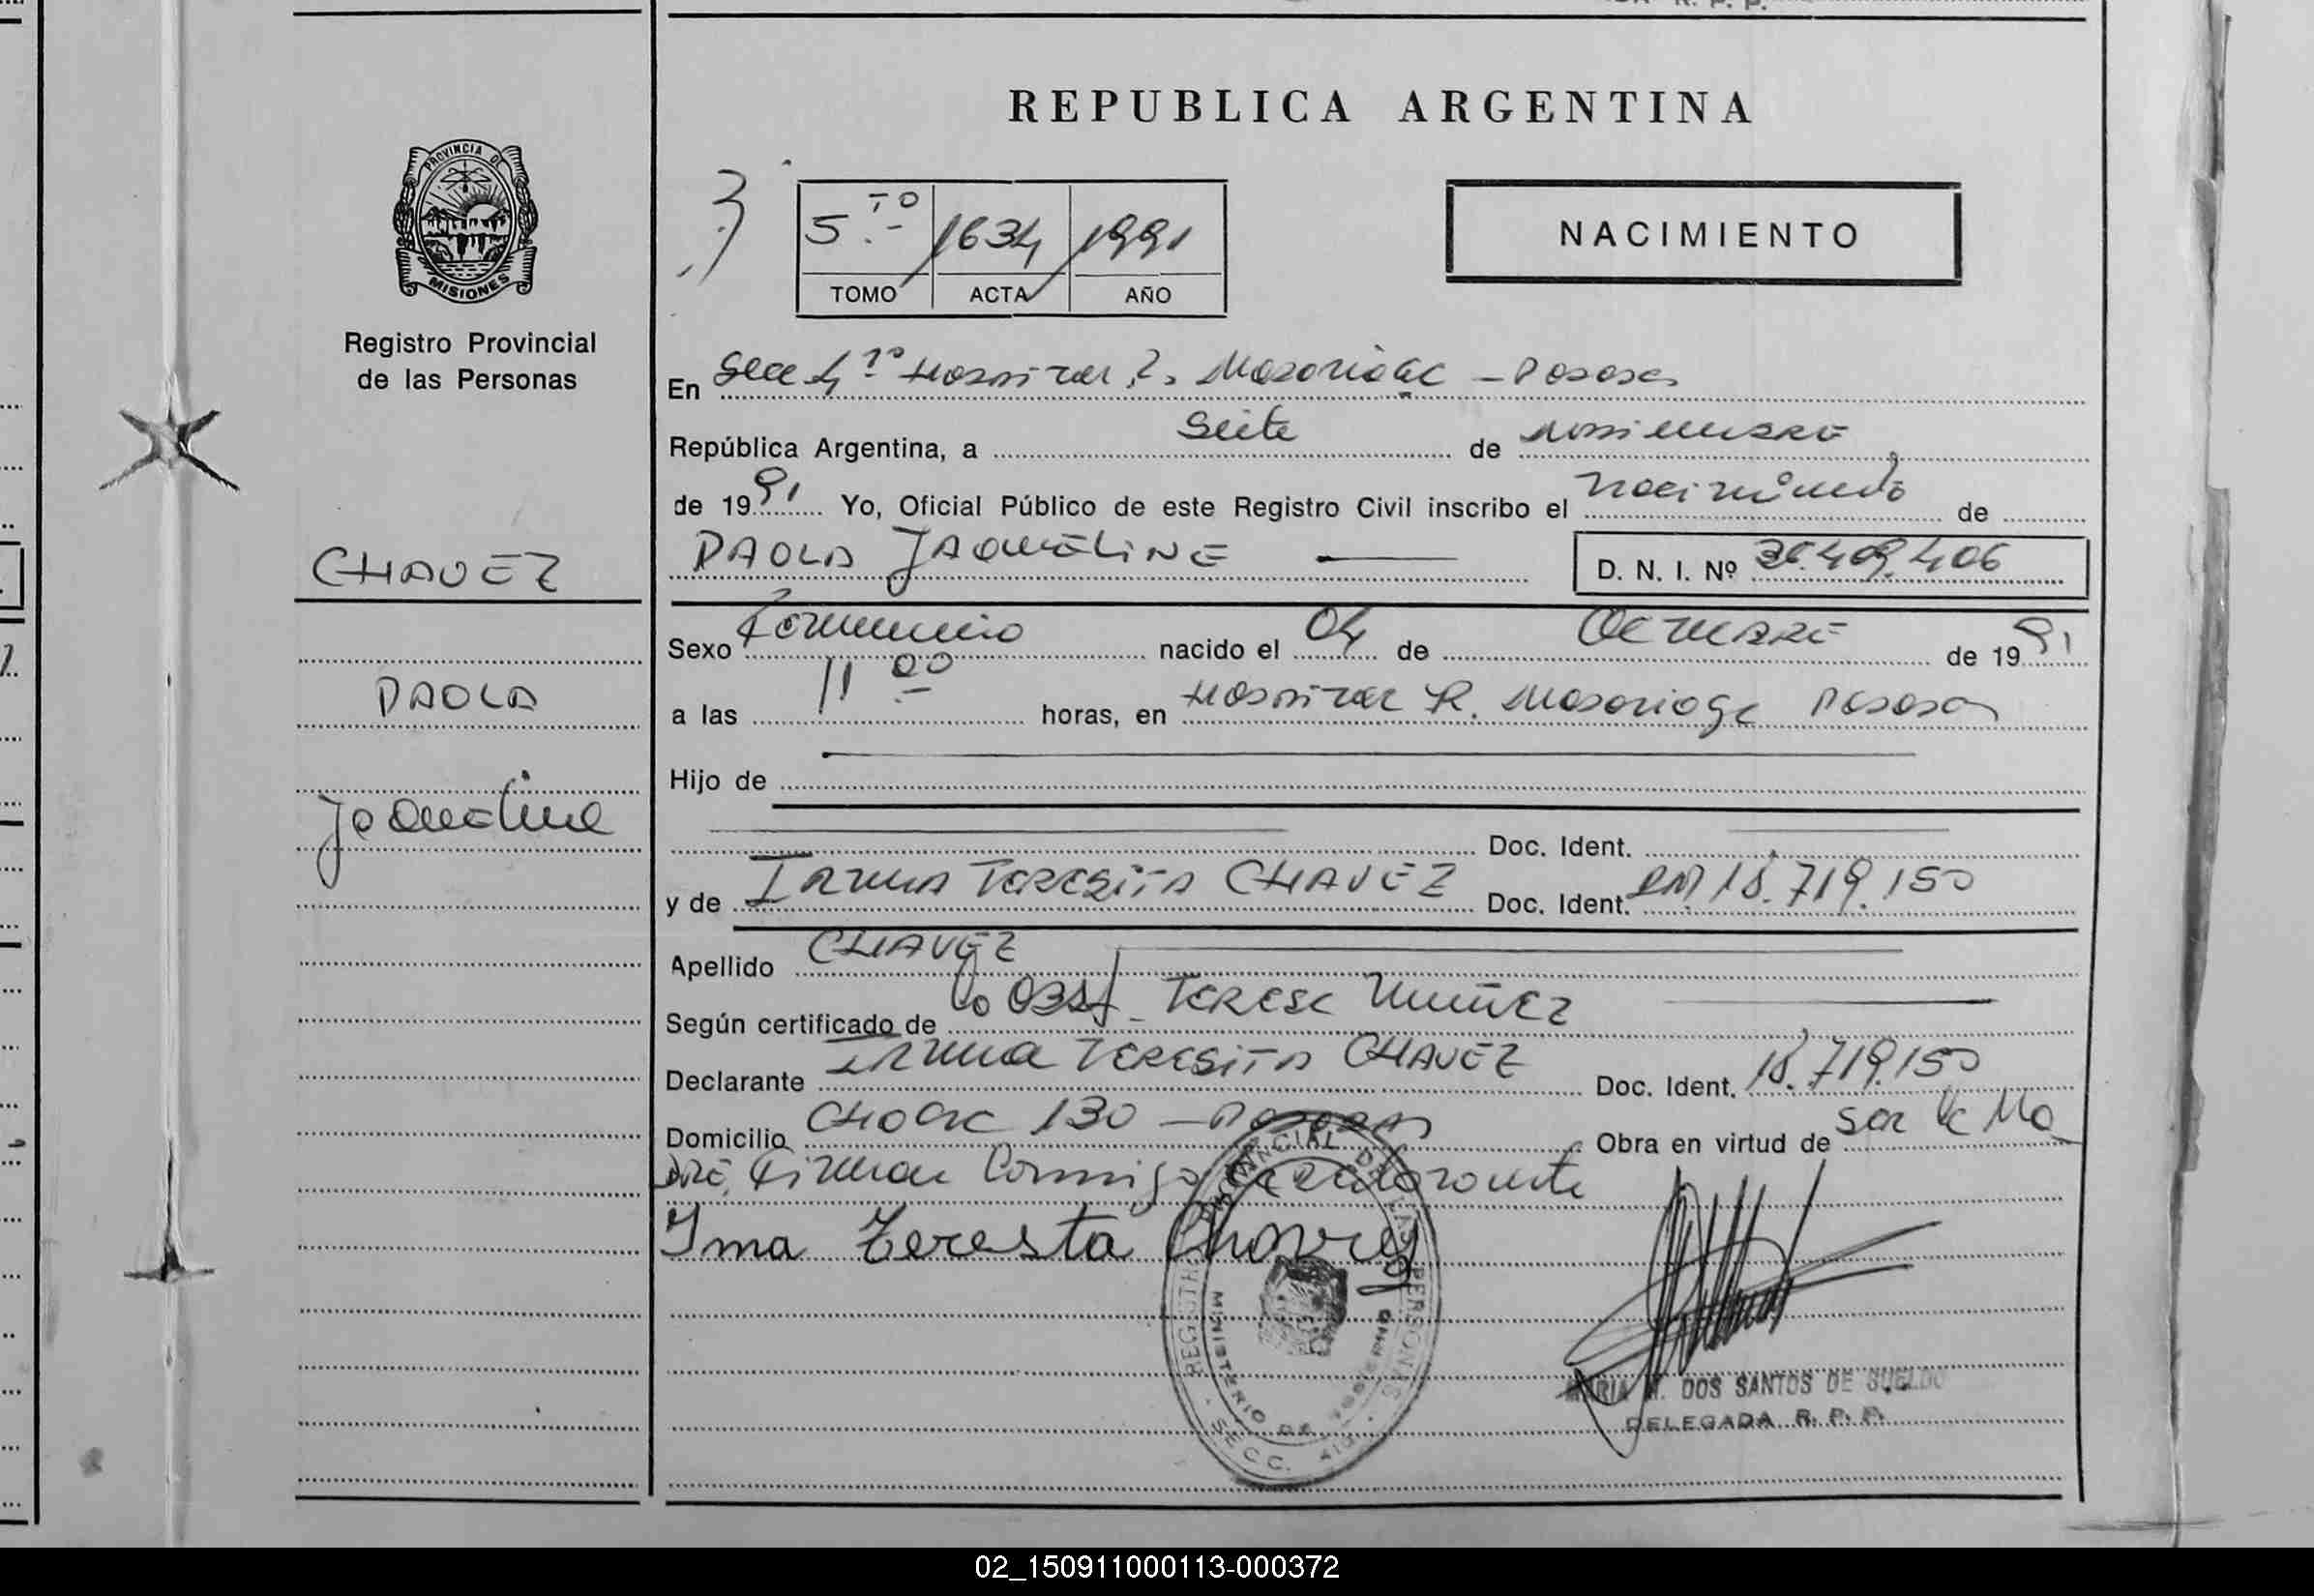 R. P. P.
REPUBLICA ARGENTINA
PROVINCIA DE
MISIONES
Registro Provincial
de las Personas
5.TO 1634 1991
TOMO ACTA AÑO
NACIMIENTO
En Secc 4º Hospital R. Madariaga - Posadas
República Argentina, a Siete de
de 1991 Yo, Oficial Público de este Registro Civil inscribo el nacimiento de
CHAVEZ
PAOLA JAQUELINE
D. N. I. Nº 36.409.406
Sexo Femenino nacido el 04 de Octubre de 1991
PAOLA
a las 11 00 horas, en Hospital R. Madariaga Posadas
Hijo de
Jaqueline
Doc. Ident.
y de IRMA TERESITA CHAVEZ Doc. Ident. DNI 18.719.150
Apellido CHAVEZ
Según certificado de la Obst. TERESA NUÑEZ
Declarante IRMA TERESITA CHAVEZ Doc. Ident. 18.719.150
Domicilio 130 - Posadas Obra en virtud de ser la Ma
dre, Firman Conmigo la declarante
Irma Teresta Chavez
REGISTRO PROVINCIAL DE LAS PERSONAS
MINISTERIO DE GOBIERNO
SECC.
MARIA DOS SANTOS DE SUELDO
DELEGADA R. P. P.
02_150911000113-000372